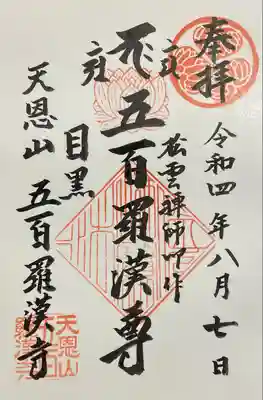 奉拝
令和四年八月七日
松雲禅師作
五百羅漢尊
目黒
天恩山 五百羅漢寺
天恩山
五百
羅漢寺